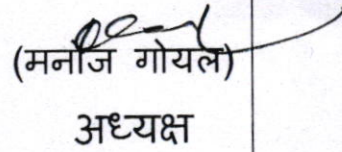 (मनोज गोयल)
अध्यक्ष